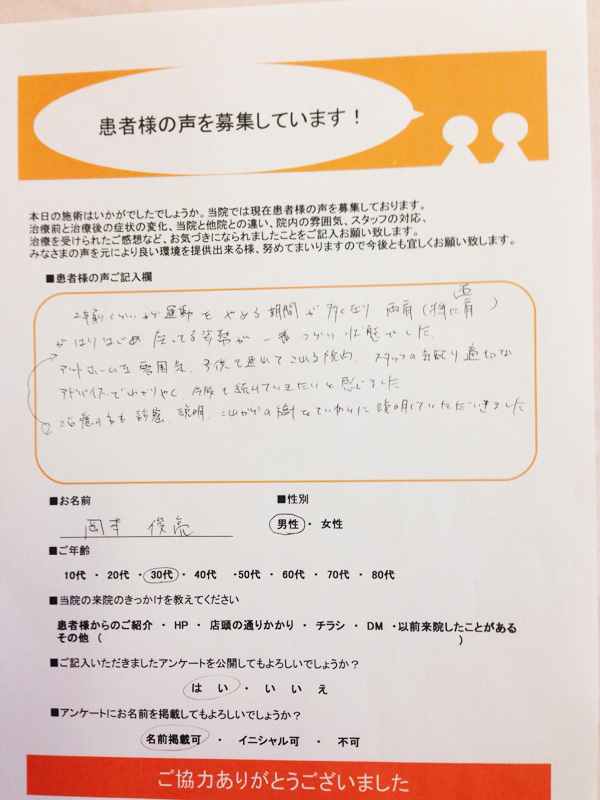 患者様の声を募集しています！
本日の施術はいかがでしたでしょうか。当院では現在患者様の声を募集しております。
治療前と治療後の症状の変化、当院と他院との違い、院内の雰囲気、スタッフの対応、
治療を受けられたご感想など、お気づきになられましたことをご記入お願い致します。
みなさまの声を元により良い環境を提供出来る様、努めてまいりますので今後とも宜しくお願い致します。
■患者様の声ご記入欄
2年前くらいから運動をやめる期間が多くなり 両肩(特に右肩)
がはりはじめ 座ってる姿勢が一番つらい状態でした。
アットホームな雰囲気、子供も連れてこれる院内、スタッフの気配り 適切な
アドバイスでわかりやすく、今後も続けていきたいと感じました
治療の方も 診察、説明、これからの施術をていねいに説明していただきました
■お名前
岡本 俊亮
■性別
男性・女性
■ご年齢
10代・20代・30代・40代・50代・60代・70代・80代
■当院の来院のきっかけを教えてください
患者様からのご紹介・HP・店頭の通りかかり・チラシ・DM・以前来院したことがある
その他（ ）
■ご記入いただきましたアンケートを公開してもよろしいでしょうか？
はい・いいえ
■アンケートにお名前を掲載してもよろしいでしょうか？
名前掲載可・イニシャル可・不可
ご協力ありがとうございました